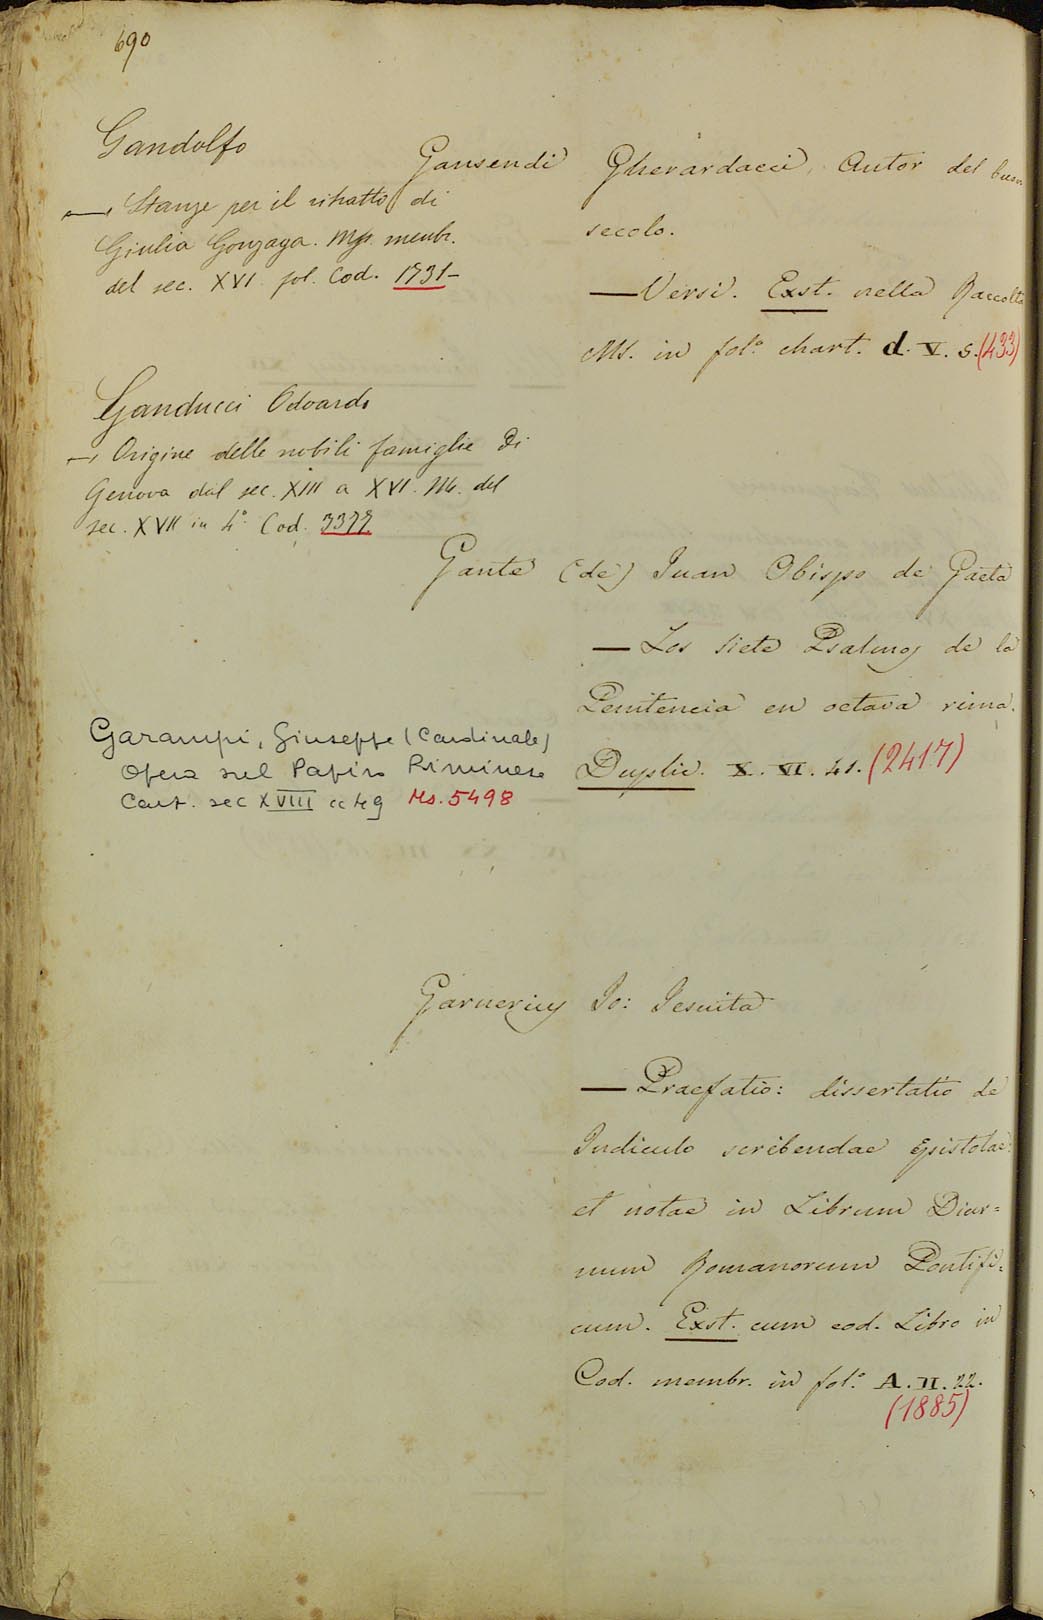 690
Gandolfo
— Stanze per il ritratto di
Giulia Gonzaga. Ms. membr.
del sec. XVI fol. Cod. 1731 –
Gansendi Gherardacci, Autor del buon
secolo.
— Versi. Exst. nella Raccolta
Ms. in fol.º chart. d. V. 5. (433)
Ganducci Odoardo
— Origine delle nobili famiglie di
Genova dal sec. XIII a XVI. Ms. del
sec. XVII in 4.º Cod. 3377
Gante (de) Juan Obispo de Gaeta
— Los siete Psalmos de la
Penitencia en octava rima.
Duplic. X. VI. 41. (2417)
Garampi, Giuseppe (Cardinale)
Opera sul Papiro Riminese
Cart. sec XVIII cc 49 Ms. 5498
Garnerius Jo: Jesuita
— Praefatio: dissertatio de
Indiculo scribendae Epistolae:
et notae in Librum Diur=
num Romanorum Pontifi=
cum. Exst. cum eod. Libro in
Cod. membr. in fol.º A. II. 22.
(1885)